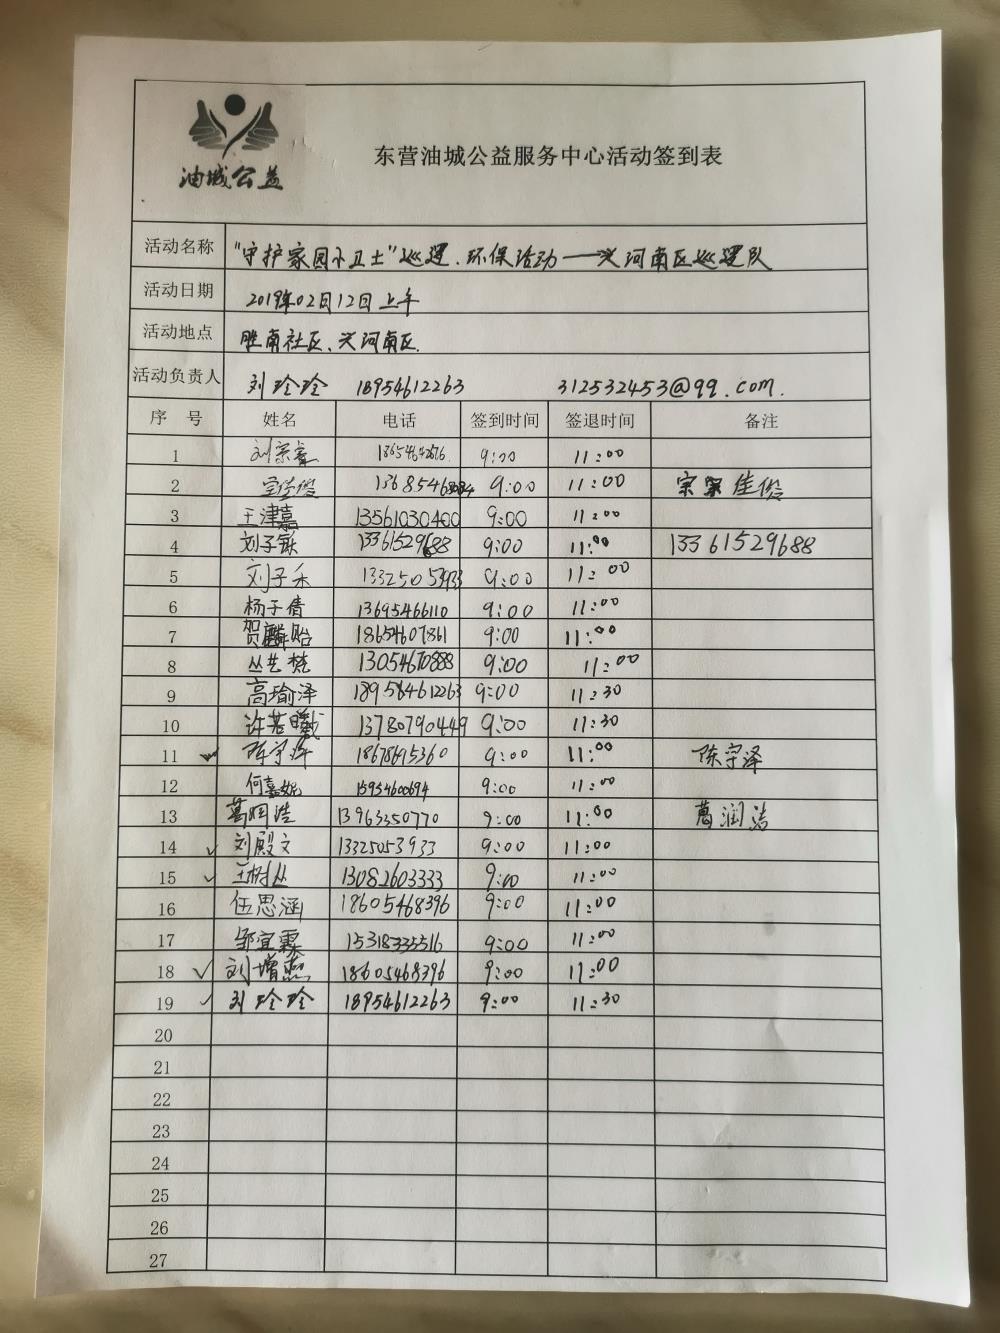 油城公益
东营油城公益服务中心活动签到表
活动名称 "守护家园小卫士"巡逻、环保活动——兴河南区巡逻队
活动日期 2019年02月12日上午
活动地点 胜南社区、兴河南区.
活动负责人 刘玲玲 18954612263 312532453@qq.com.
序 号 姓名 电话 签到时间 签退时间 备注
1 刘宗睿 9:00 11:00
2 宗佳俊 9:00 11:00 宗 佳俊
3 王津嘉 13561030400 9:00 11:00
4 刘子 13361529688 9:00 11:00 13361529688
5 刘子禾 13325053933 9:00 11:00
6 杨子倩 13695466110 9:00 11:00
7 贺麟贻 18654607861 9:00 11:00
8 丛艺梵 13054670888 9:00 11:00
9 高瑜泽 18954612263 9:00 11:30
10 许若曦 13780790449 9:00 11:30
11 陈宇泽 18678695360 9:00 11:00 陈宇泽
12 何嘉妮 15954600694 9:00 11:00
13 葛润浩 13963350770 9:00 11:00 葛润浩
14 刘殿文 13325053933 9:00 11:00
15 王树丛 13082603333 9:00 11:00
16 伍思涵 18605468396 9:00 11:00
17 邹宜霖 15318335516 9:00 11:00
18 刘增燕 18605468396 9:00 11:00
19 刘玲玲 18954612263 9:00 11:30
20
21
22
23
24
25
26
27